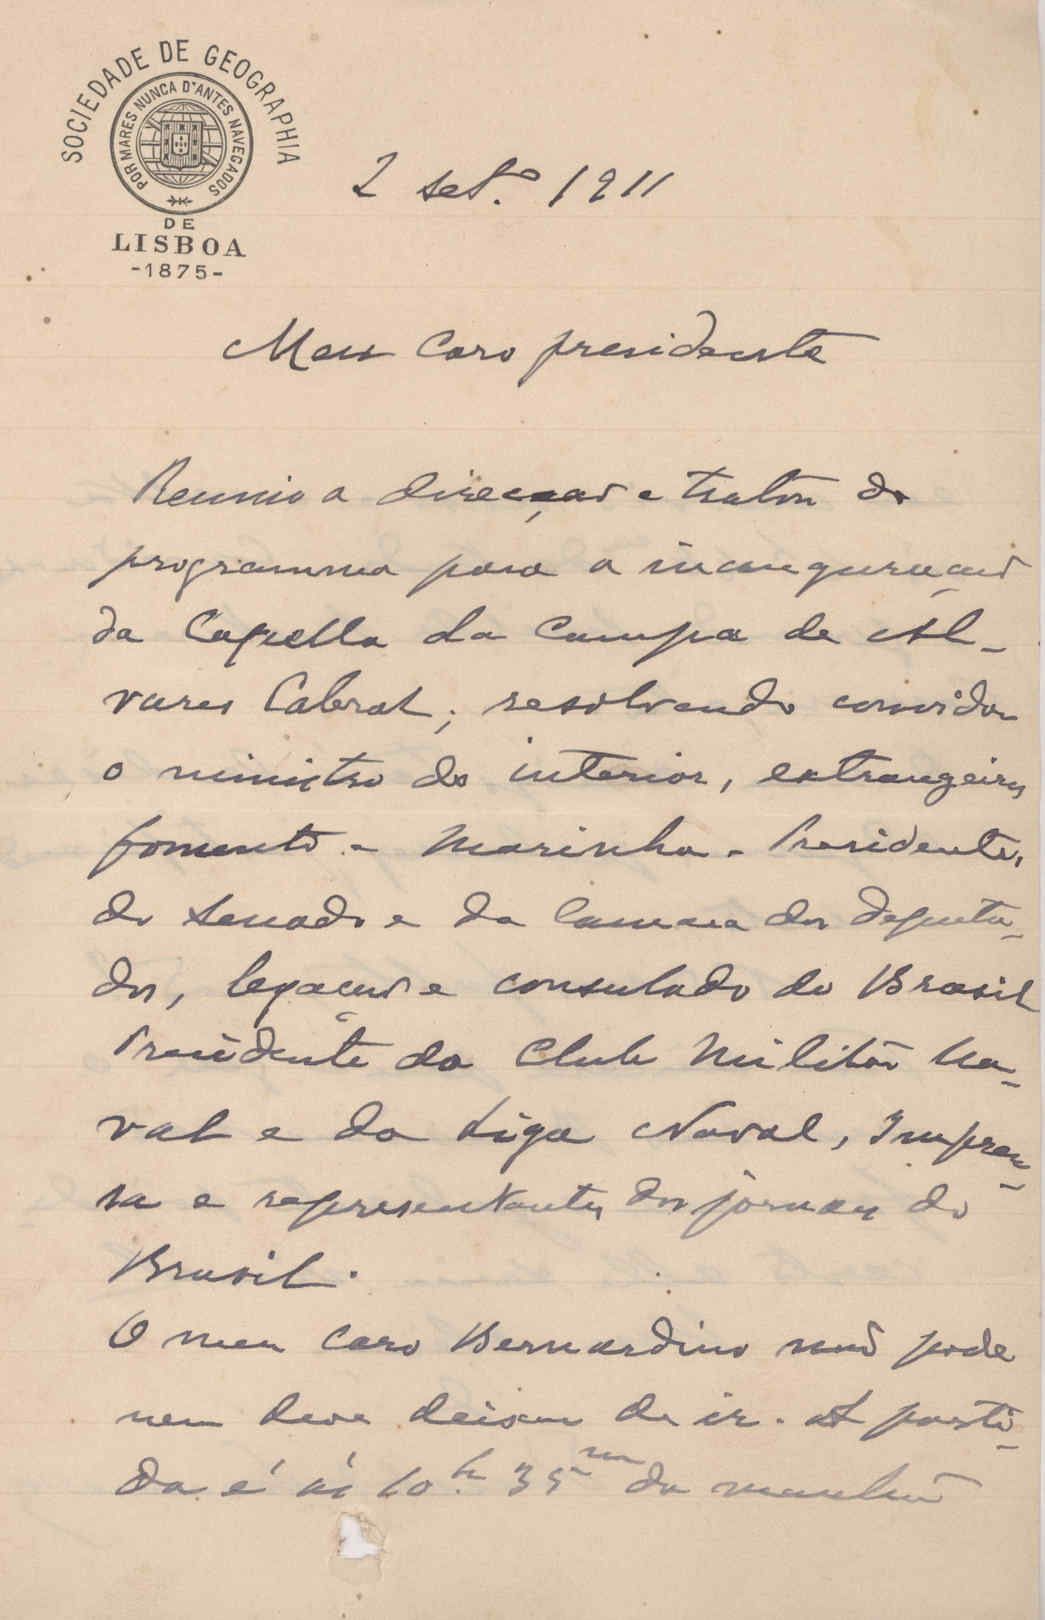 SOCIEDADE DE GEOGRAPHIA
POR MARES NUNCA D'ANTES NAVEGADOS
DE
LISBOA
-1875-
2 set.º 1911
Meu caro presidente
Reunio a direcção e tratou do
programma para a inauguração
da Capella da Campa de Al-
vares Cabral; resolvendo convidar
o ministro do interior, extrangeiros
fomento e Marinha. Presidentes,
do Senado e da Camara dos deputa-
dos, legação e consulado do Brasil
Presidente do Club Militar Na-
val e da Liga Naval, Impren-
sa e representantes dos jornaes do
Brasil.
O meu caro Bernardino não pode
nem deve deixar de ir. A parti-
da é ás 10h 35m da manhã